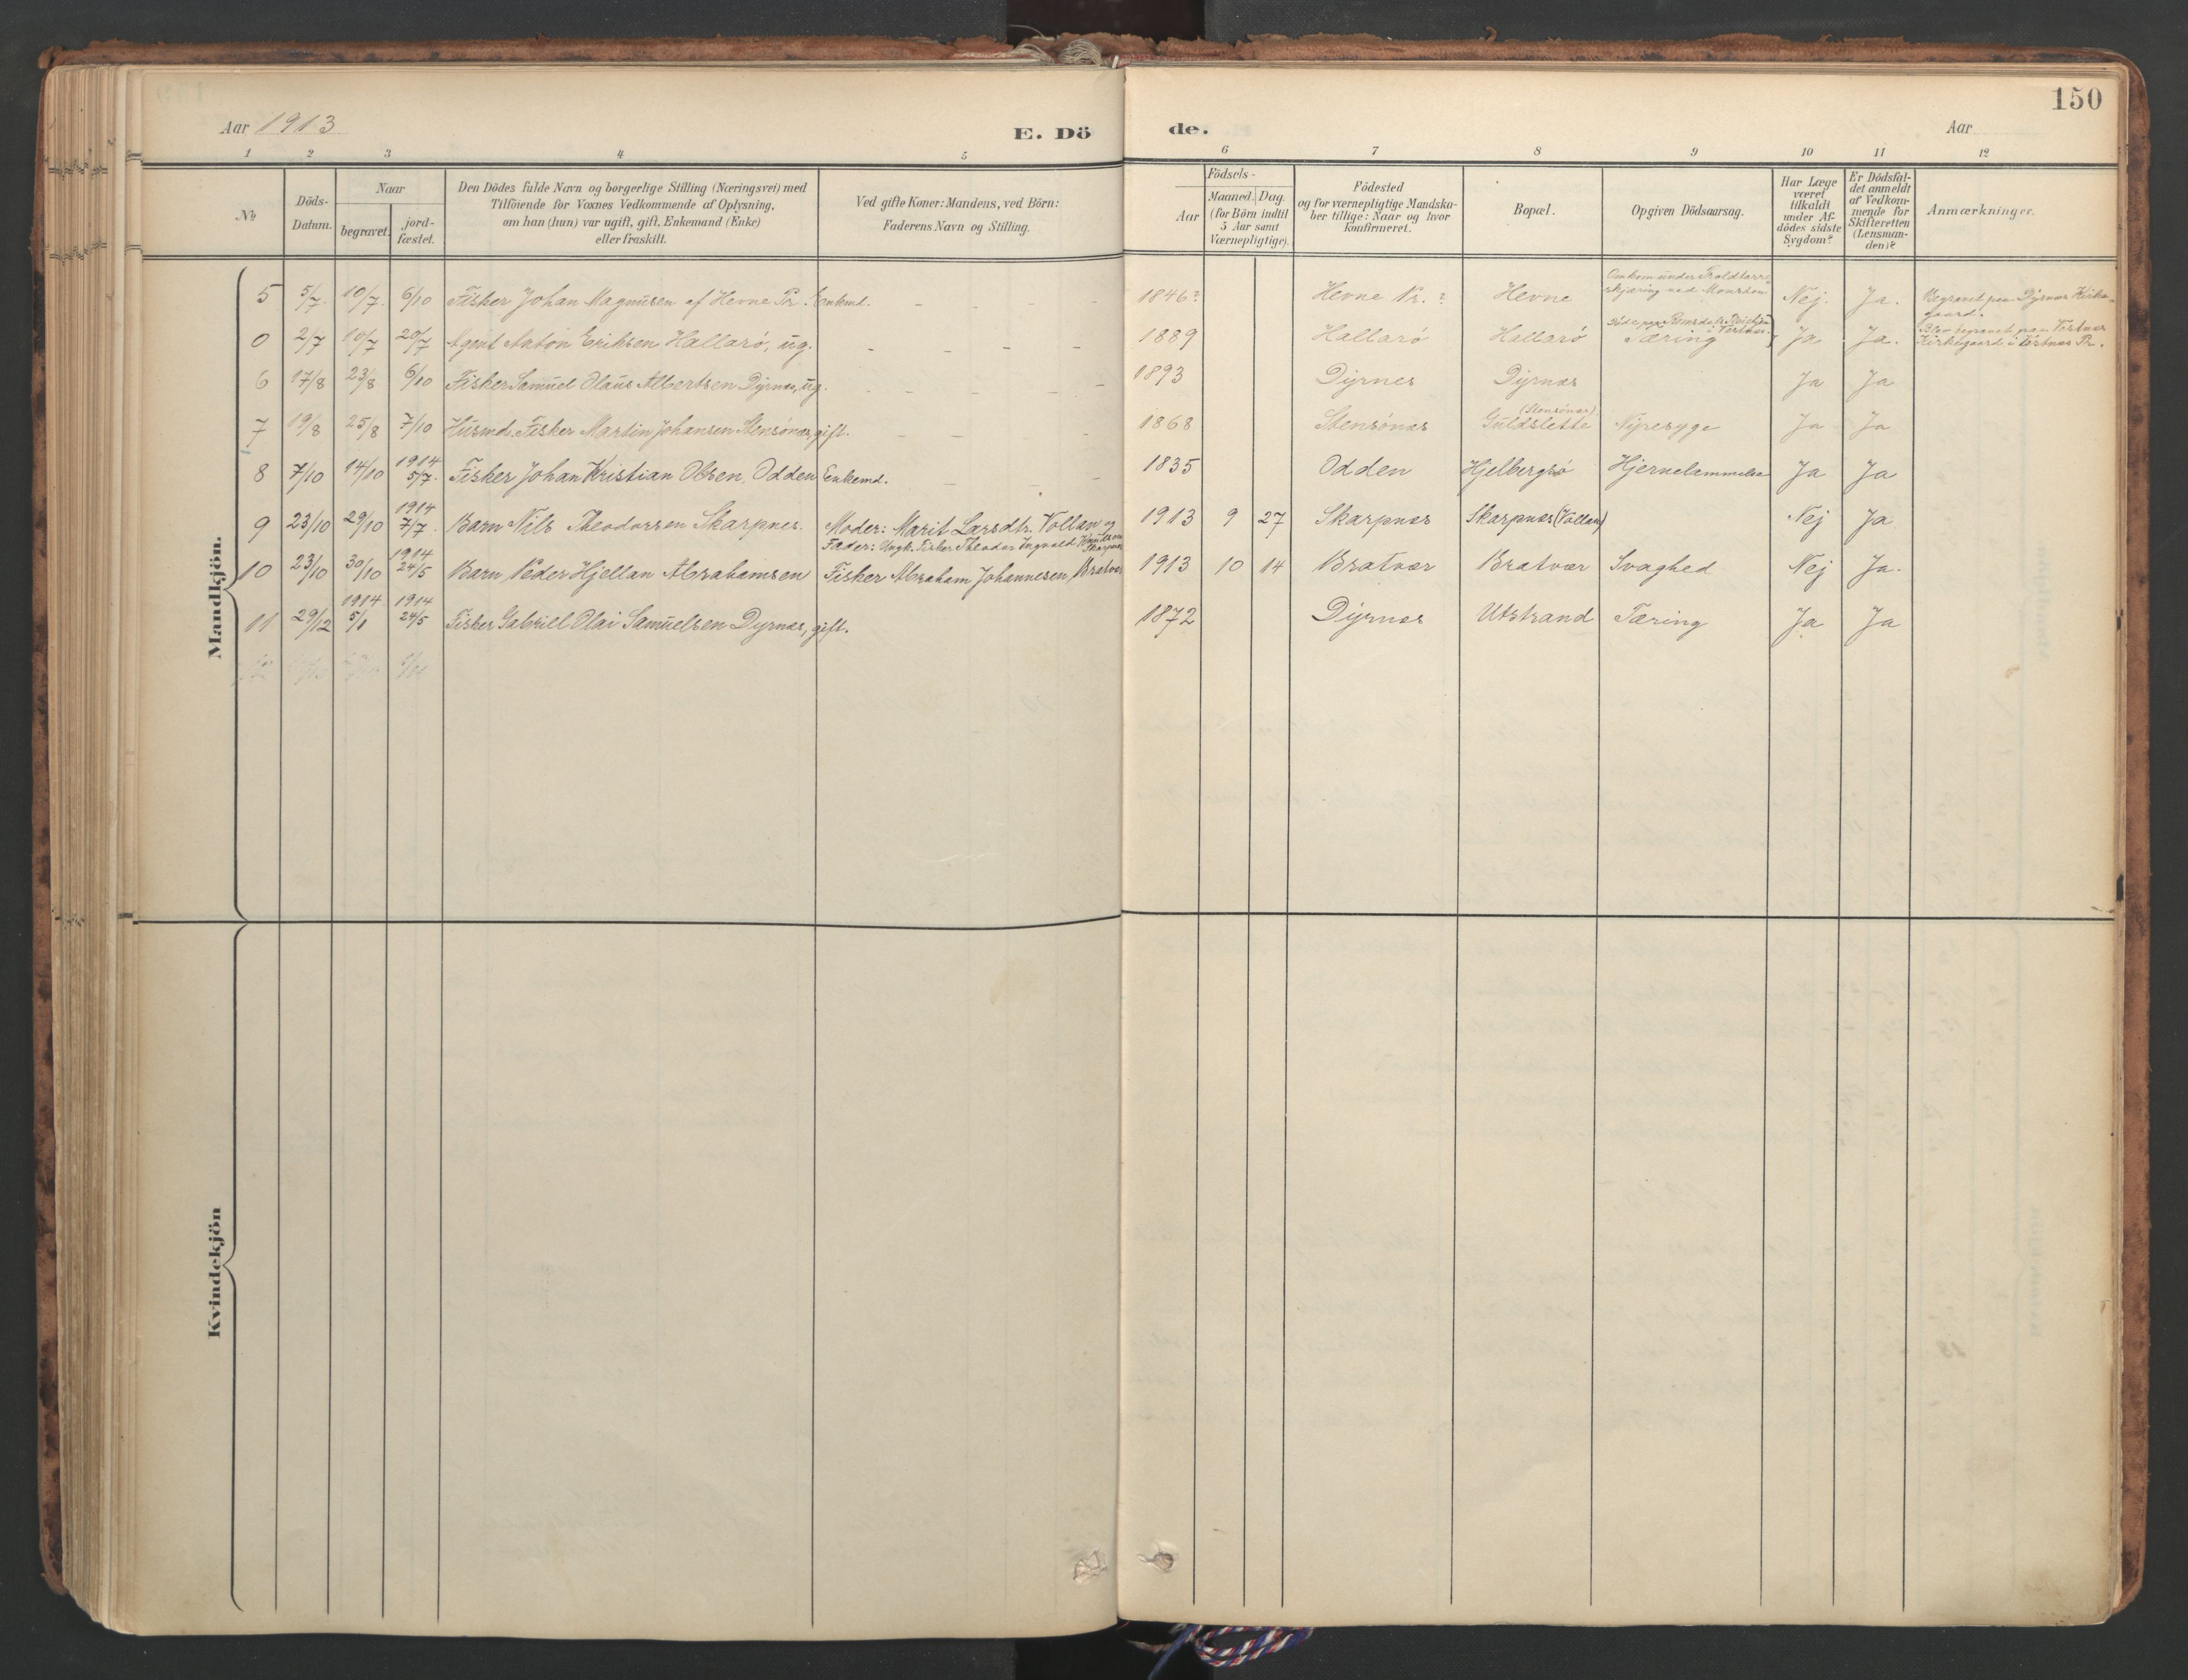 150
Aar 1913
E. Dö
de.
Aar
1 2 3 4 5 6 7 8 9 10 11 12
№
Döds-
Datum.
Naar
begravet.
jord-
fæstet.
Den Dödes fulde Navn og borgerlige Stilling (Næringsvei) med
Tilföiende for Voxnes Vedkommende af Oplysning,
om han (hun) var ugift, gift, Enkemand (Enke)
eller fraskilt.
Ved gifte Koner: Mandens, ved Börn:
Faderens Navn og Stilling.
Födsels-
Aar
Maaned. Dag.
(for Börn indtil
5 Aar samt
Værnepligtige).
Födested
og for værnepligtige Mandska-
ber tillige: Naar og hvor
konfirmeret.
Bopæl.
Opgiven Dödsaarsag.
Har Læge
været
tilkaldt
under Af-
dödes sidste
Sygdom?
Er Dödsfal-
det anmeldt
af Vedkom-
mende for
Skifteretten
(Lensman-
den)?
Anmærkninger.
Mandkjön.
5 5/7. 10/7. 6/10 Fisker Johan Magnusen af Hevne Pr. Enkemd. - - - - 1846? Hevne Pr.? Hevne Omkom under skjæring ved Nej. Ja. Begravet paa Dyrnæs Kirke-
gaard.
0 2/7 10/7 20/7 Agent Anton Eriksen Hallarö, ug. - - - - 1889 Hallarö Hallarö Döde paa Tæring Ja Ja. Blev begravet paa
Kirkegaard i Pr.
6 17/8 23/8 6/10 Fisker Samuel Olaus Albertsen Dyrnæs, ug. - - - - - 1893 Dyrnes Dyrnæs Ja Ja
7 19/8 25/8 7/10 Husmd. Fisker Martin Johansen Stensönæs, gift. - - - - 1868 Stensönæs (Stensönæs) Guldslette Nyresyge Ja Ja
8 7/10 14/10 1914 5/7. Fisker Johan Kristian Olsen, Odden Enkemd. - - - 1835 Odden Hjelbergsö Hjernelammelse Ja Ja
9 23/10 29/10 1914 7/7. Barn Nils Theodorsen Skarpnes. Moder: Marit Larsdtr. Vollan og
Fader: Ungk. Fisker Theodor Ingvald Knudsen Skarpnæs 1913 9 27 Skarpnæs Skarpnæs (Vollan) Nej Ja
10 23/10 30/10 1914 24/5 Barn Peder Hjellan Abrahamsen Fisker Abraham Johannesen, Bratvær 1913 10 14 Bratvær Bratvær Svaghed Nej Ja.
11 29/12 1914 5/1 1914 24/5 Fisker Gabriel Olai Samuelsen Dyrnæs, gift. 1872 Dyrnæs Utstrand Tæring Ja Ja
Kvindekjön